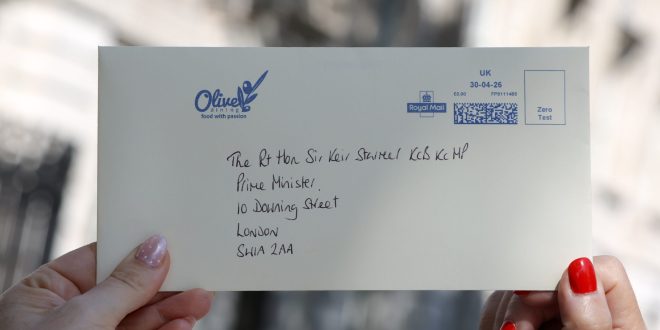 Olive
dining
food with passion
Royal Mail
UK
30-04-26
£0.00 FP9111485
Zero
Test
The Rt Hon Sir Keir Starmer KCB KC MP
Prime Minister.
10 Downing Street
LONDON
SW1A 2AA